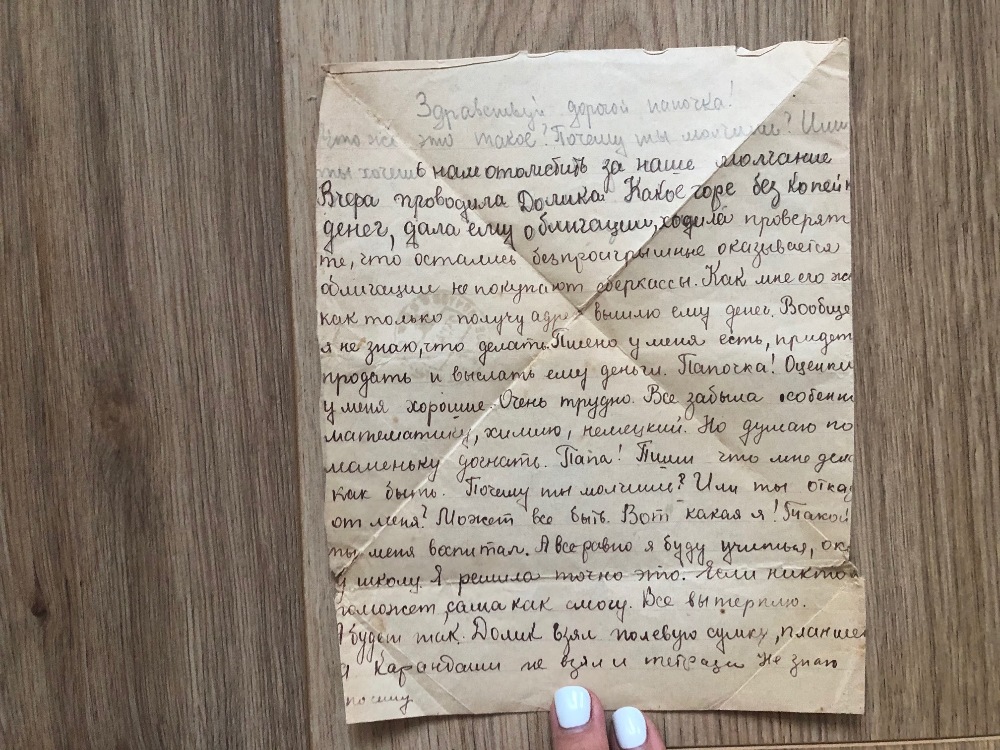 Здравствуй дорогой папочка!
Что же это такое? Почему ты молчишь? Или
ты хочешь нам отомстить за наше молчание
Вчера проводила Долика. Какое горе без копейк
денег, дала ему облигации, ходила проверят
те, что остались беспроигрышные оказывается
облигации не покупают сберкассы. Как мне его жа
как только получу адрес вышлю ему денег. Вообще
я не знаю, что делать. Пшено у меня есть, придет
продать и выслать ему деньги. Папочка! Оценки
у меня хорошие. Очень трудно. Все забыла особенн
математику, химию, немецкий. Но думаю по
маменьку догнать. Папа! Пиши что мне дела
как быть. Почему ты молчишь? Или ты отказ
от меня? Может все быть. Вот какая я! Такой
ты меня воспитал. А всеравно я буду учиться, ок
у школу. Я решила точно это. Если никто
поможет, сама как смогу. Все вытерплю.
И будет так. Долик взял полевую сумку, планше
а карандаши не взял и тетради. Не знаю
почему.